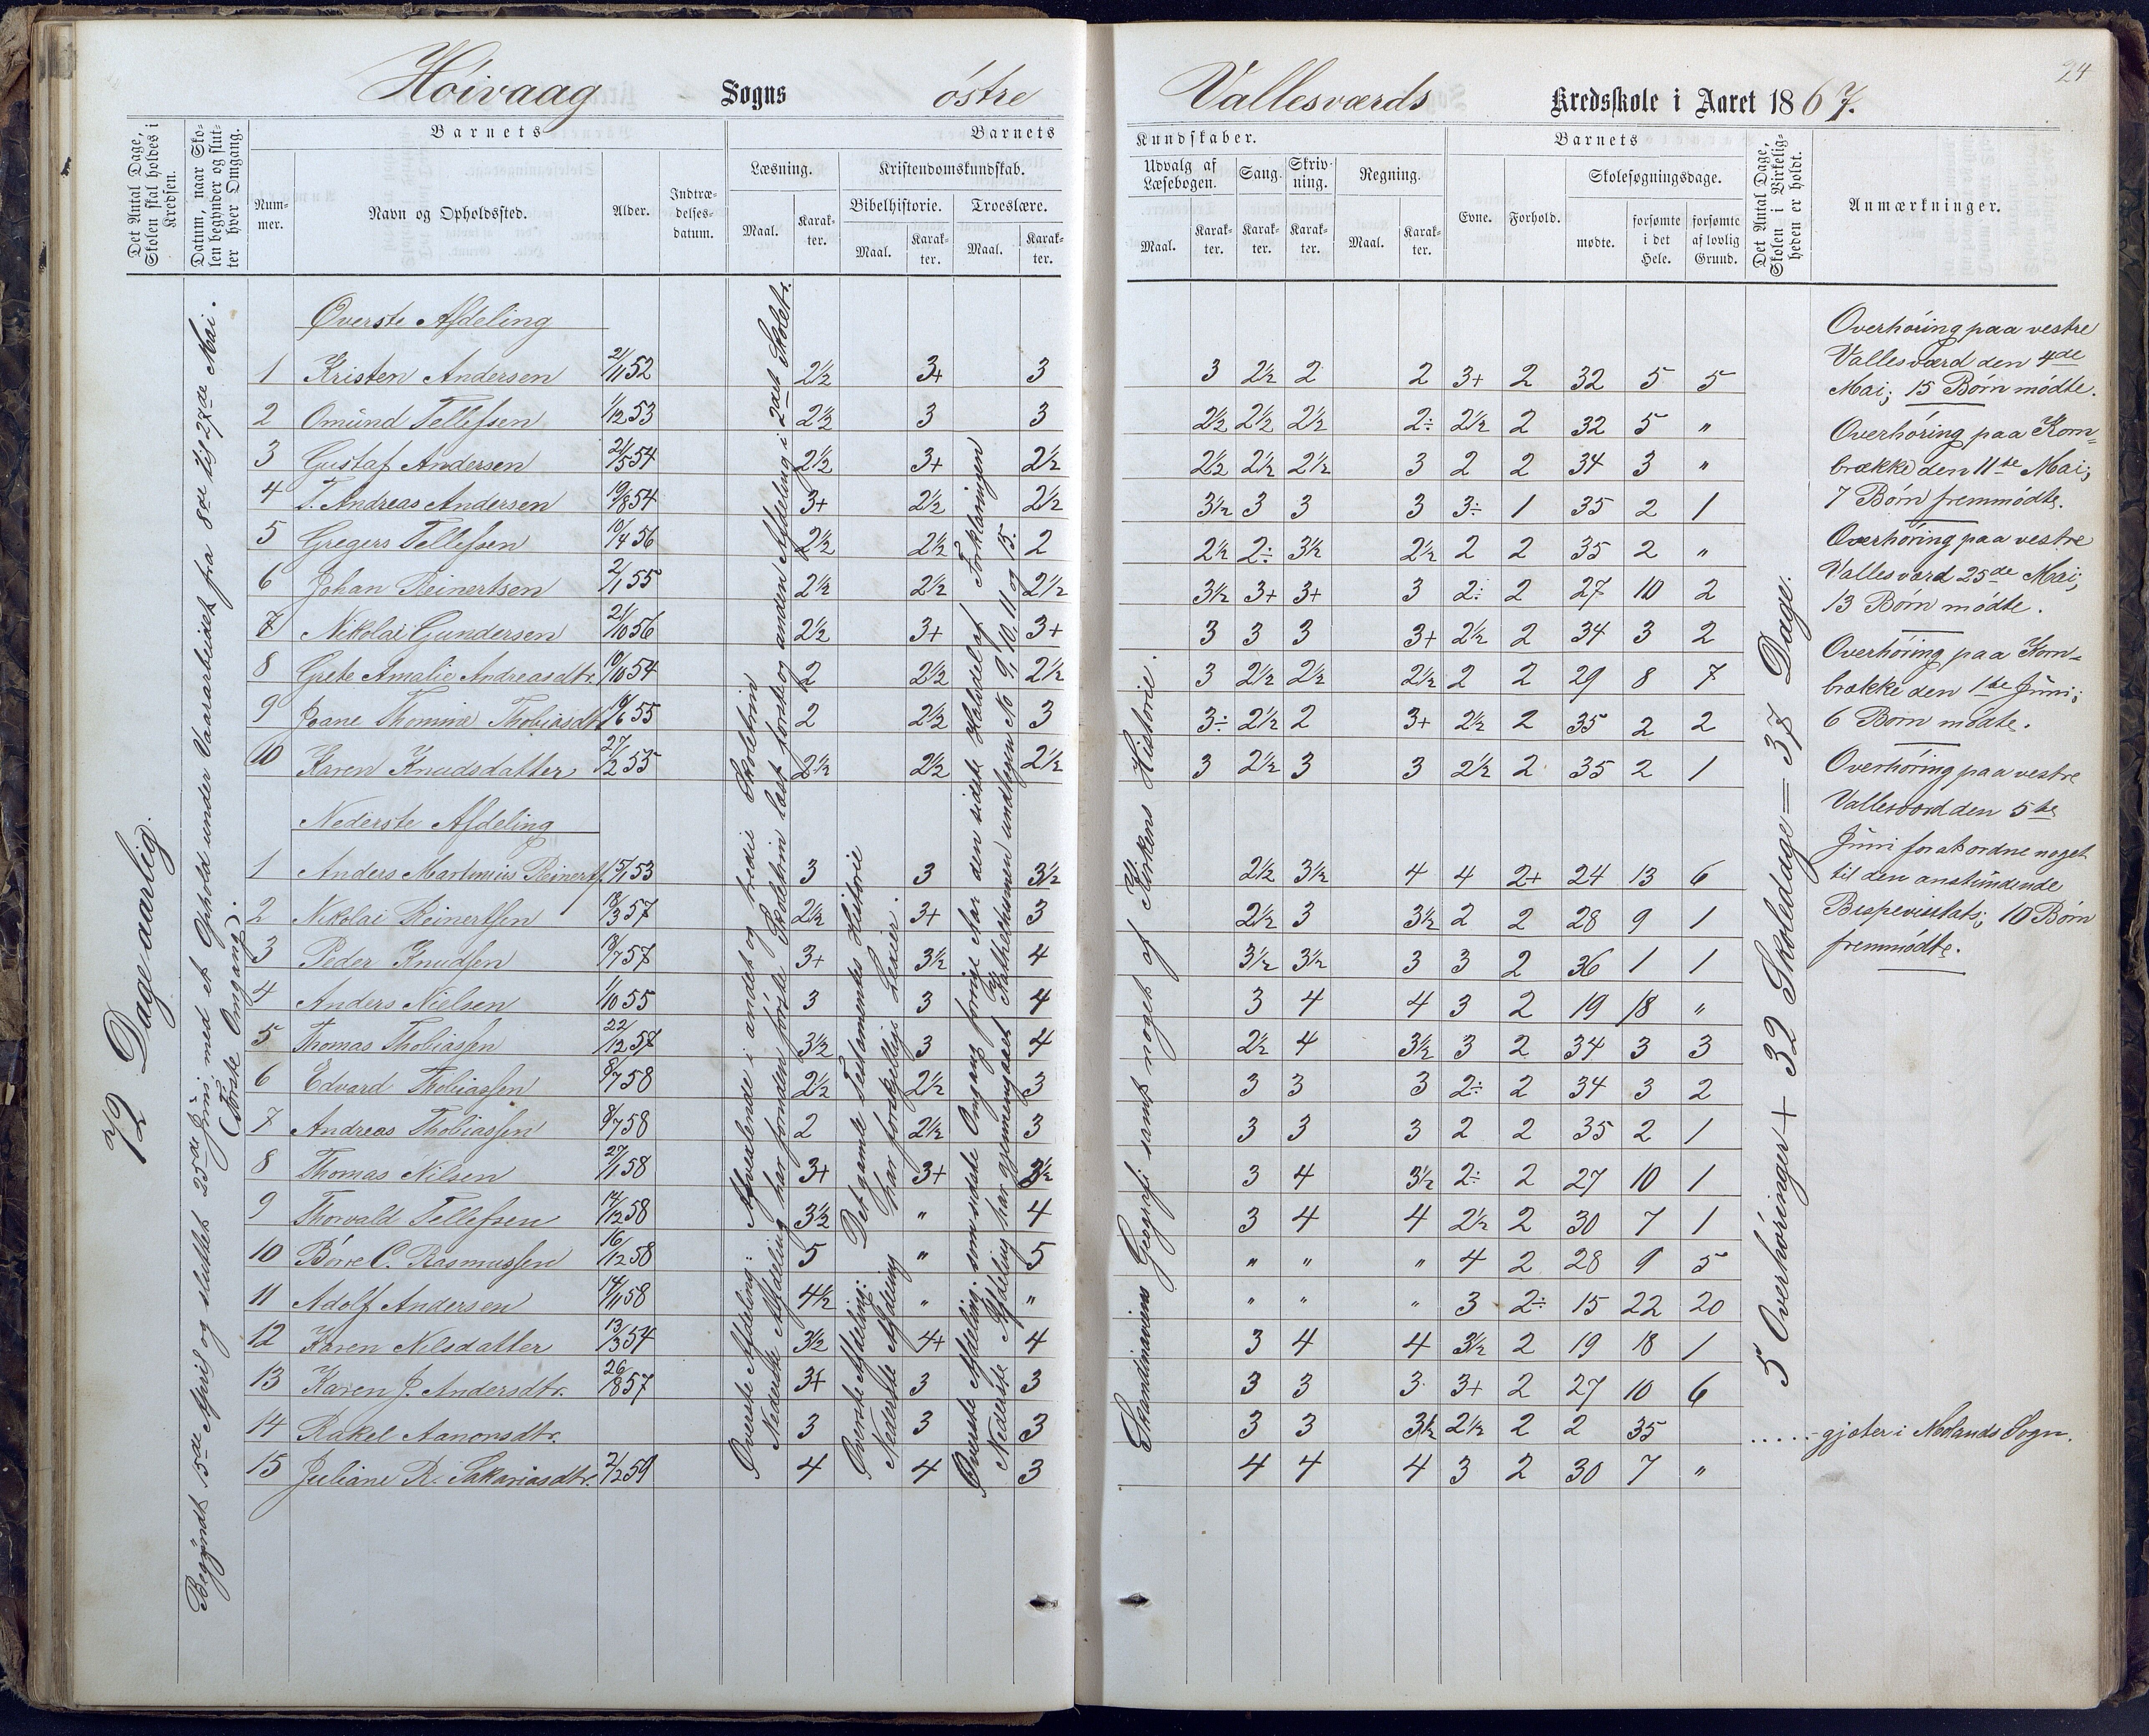 Høivaag Sogns østre Vallesværds Kredsskole i Aaret 1867.
24
Det Antal Dage, Skolen skal holdes i Kredsen.
Datum, naar Skolen begynder og slutter hver Omgang.
Barnets
Nummer.
Navn og Opholdssted.
Alder.
Indtrædelsesdatum.
Barnets
Læsning.
Maal.
Karakter.
Kristendomskundskab.
Bibelhistorie.
Maal.
Karakter.
Troeslære.
Maal.
Karakter.
Kundskaber.
Udvalg af Læsebogen.
Maal.
Karakter.
Sang.
Karakter.
Skrivning.
Karakter.
Regning.
Maal.
Karakter.
Barnets
Evne.
Forhold.
Skolesøgningsdage.
mødte.
forsømte i det Hele.
forsømte af lovlig Grund.
Det Antal Dage, Skolen i Virkeligheden er holdt.
Anmærkninger.
72 Dage aarlig.
Begyndt 15de April og sluttet 25de Juni, med et Ophold under Vaararbeidet fra 8de til 27de Mai.
(Første Omgang).
Øverste Afdeling
1 Kristen Andersen 21/11 52 2½ 3+ 3 3 2½ 2 2 3+ 2 32 5 5
2 Omund Tellefsen 1/12 53 2½ 3 3 2½ 2½ 2½ 2÷ 2½ 2 32 5 "
3 Gustaf Andersen 21/5 54 2½ 3+ 2½ 2½ 2½ 2½ 3 2 2 34 3 "
4 T. Andreas Andersen 19/8 54 3+ 2½ 2½ 3½ 3 3 3 3÷ 1 35 2 1
5 Gregers Tellefsen 10/4 56 2½ 2½ 2 2½ 2÷ 3½ 2½ 2 2 35 2 "
6 Johan Reinertsen 2/1 55 2½ 2½ 2½ 3½ 3+ 3+ 3 2÷ 2 27 10 2
7 Nikolai Gundersen 21/10 56 2½ 3+ 3+ 3 3 3 3+ 2½ 2 34 3 2
8 Grete Amalie Andreasdtr. 10/10 54 2 2½ 2½ 3 2½ 2½ 2½ 2 2 29 8 7
9 Joane Thomine Thobiasdtr. /6 55 2 2½ 3 3÷ 2½ 2 3+ 2½ 2 35 2 2
10 Karen Knudsdatter 27/2 55 2½ 2½ 2½ 3 2½ 3 3 2½ 2 35 2 1
Nederste Afdeling
1 Anders Martinius Reinerts. 15/1 53 3 3 3½ 2½ 3½ 4 4 2+ 24 13 6
2 Nikolai Reinertsen 18/3 57 2½ 3+ 3 2½ 3 3½ 2 2 28 9 1
3 Peder Knudsen 18/7 57 3+ 3½ 4 3½ 3½ 3 3 2 36 1 1
4 Anders Nielsen 1/10 55 3 3 4 3 4 4 3 2 19 18 "
5 Thomas Thobiassen 22/12 57 3½ 3 4 2½ 4 3½ 3 2 34 3 3
6 Edvard Thobiassen 8/7 58 2½ 2½ 3 3 3 3 2÷ 2 34 3 2
7 Andreas Thobiassen 8/7 58 2 2½ 3 3 3 3 2 2 35 2 1
8 Thomas Nilsen 27/1 58 3+ 3+ 3½ 3 4 3½ 2÷ 2 27 10 1
9 Thorvald Tellefsen 14/12 58 3½ " 4 3 4 4 2½ 2 30 7 1
10 Børre C. Rasmussen 16/12 58 5 " 5 " " " 4 2 28 9 5
11 Adolf Andersen 14/11 58 4½ " " " " " 3 2÷ 15 22 20
12 Karen Nilsdatter 13/3 54 3½ 4+ 4 3 4 4 3½ 2 19 18 1
13 Karen J. Andersdtr. 26/8 57 3+ 3 3 3 3 3 3+ 2 27 10 6
14 Rakel Aanonsdtr. 3 3 3 3 3 3½ 2½ 2 2 35 ..... gjæter i Molands Sogn.
15 Juliane R. Sakariasdtr. 2/2 59 4 4 3 4 4 4 3 2 30 7 "
Øverste Afdeling: Afvexlende i andet og tredie Skoletrin
Nederste Afdeling har foruden første Skoletrin læst første og anden Afdeling i 2det Skoletr.
Øverste Afdeling: Det gamle Testamentes Historie
Nederste Afdeling har forskjellige Lexier.
Øverste Afdeling: som sidste Omgang forrige Aar den sidste Halvdel af Forklaringen
Nederste Afdeling har gjennemgaaet Kathechismen undtagen No 9, 10, 11 og 15.
Skandinaviens Geografi samt noget af Kirkens Historie.
5 Overhøringer + 32 Skoledage = 37 Dage.
Overhøring paa vestre
Vallesværd den 4de
Mai; 15 Børn mødte.
Overhøring paa Korn-
brække den 11te Mai;
7 Børn fremmødte.
Overhøring paa vestre
Vallesværd 25de Mai;
13 Børn mødte.
Overhøring paa Korn-
brække den 1ste Juni;
6 Børn mødte.
Overhøring paa vestre
Vallesværd den 5te
Juni for at ordne noget
til den anstundende
Bispevisitats; 10 Børn
fremmødte.